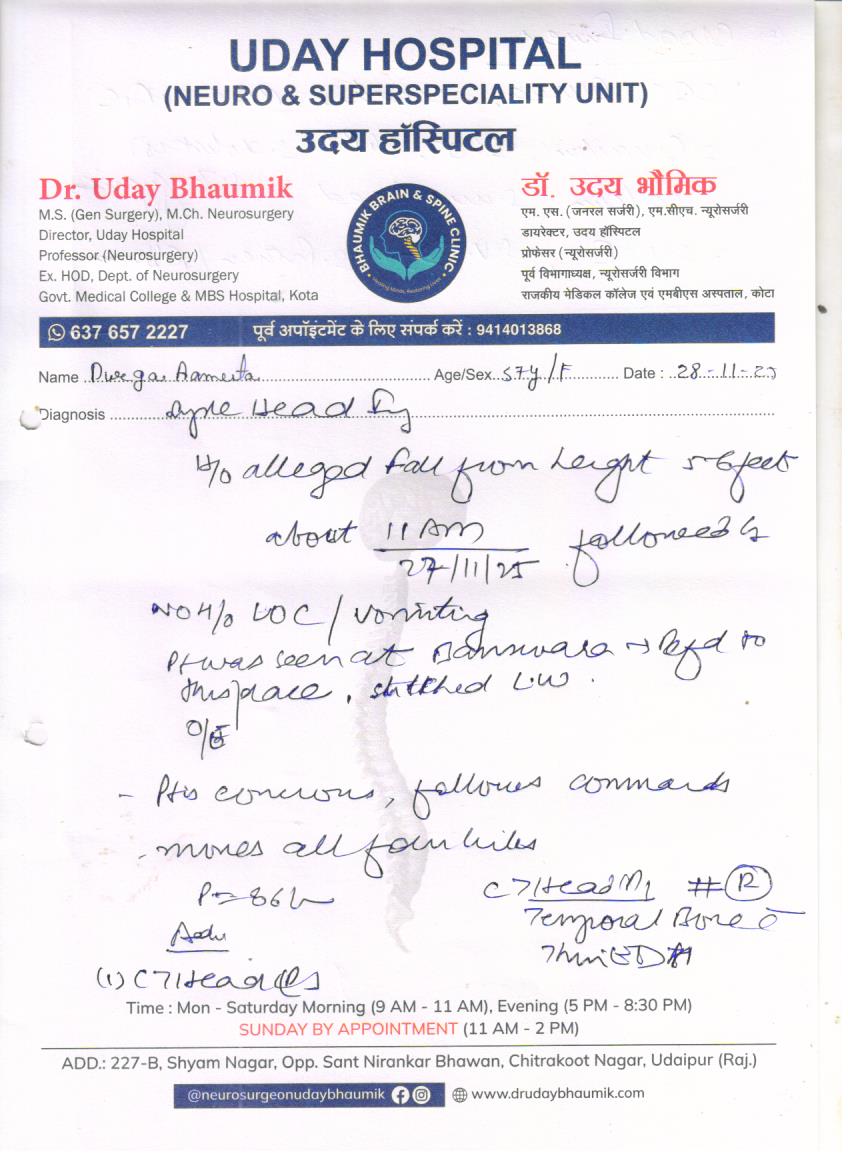 UDAY HOSPITAL
(NEURO & SUPERSPECIALITY UNIT)
उदय हॉस्पिटल
Dr. Uday Bhaumik
M.S. (Gen Surgery), M.Ch. Neurosurgery
Director, Uday Hospital
Professor (Neurosurgery)
Ex. HOD, Dept. of Neurosurgery
Govt. Medical College & MBS Hospital, Kota
BHAUMIK BRAIN & SPINE CLINIC
डॉ. उदय भौमिक
एम. एस. (जनरल सर्जरी), एम.सीएच. न्यूरोसर्जरी
डायरेक्टर, उदय हॉस्पिटल
प्रोफेसर (न्यूरोसर्जरी)
पूर्व विभागाध्यक्ष, न्यूरोसर्जरी विभाग
राजकीय मेडिकल कॉलेज एवं एमबीएस अस्पताल, कोटा
637 657 2227 पूर्व अपॉइंटमेंट के लिए संपर्क करें : 9414013868
Name Durga Age/Sex 57y/F Date : 28-11-25
Diagnosis Head Inj
H/o alleged fall from height 5-6 feet
about 11 AM followed by
27/11/25
NO H/o LOC / vomiting
Pt was seen at Banswara → Refd to
this place, stitched L.W.
O/E
- Pt is concious, follows commands
- moves all four limbs
P = 86/
CT Head # (R)
Temporal Bone c
Thin EDH
Adv
(1) CT Head
Time : Mon - Saturday Morning (9 AM - 11 AM), Evening (5 PM - 8:30 PM)
SUNDAY BY APPOINTMENT (11 AM - 2 PM)
ADD.: 227-B, Shyam Nagar, Opp. Sant Nirankar Bhawan, Chitrakoot Nagar, Udaipur (Raj.)
@neurosurgeonudaybhaumik www.drudaybhaumik.com